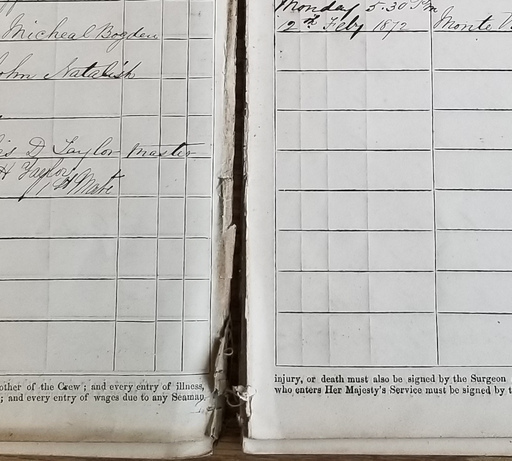 Micheal Bogden
John Natalish
D Taylor Master
H Taylor
Mate
other of the Crew ; and every entry of illness,
; and every entry of wages due to any Seaman
Monday 5.30 Pm
2nd Feby 1872 Monte
injury, or death must also be signed by the Surgeon
who enters Her Majesty's Service must be signed by t